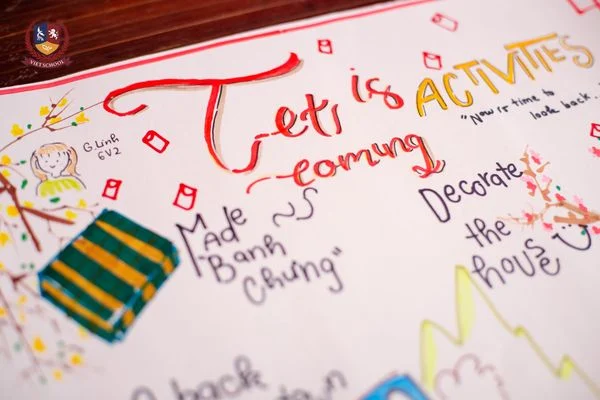 VIETSCHOOL
Tet is
coming
ACTIVITIES
"Now it time to
look back..
G.Linh
6V2
Made
"Banh
Chung"
Decorate
the
house
back